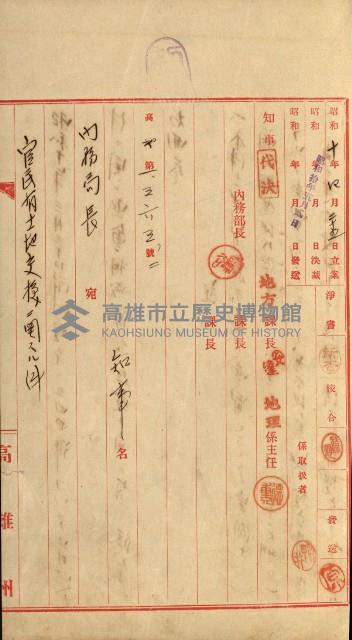 昭和十年四月 日立案
昭和 年 月 日決裁
昭和 年 月 日發送
淨書
校合
發送
係取扱者
知事
代決
內務部長
地方課長
課長
課長
地理係主任
高 第六三六五號ノ二
知事名
內務局長 宛
官民有土地交換ニ關スル件
高雄州
高雄市立歷史博物館
KAOHSIUNG MUSEUM OF HISTORY